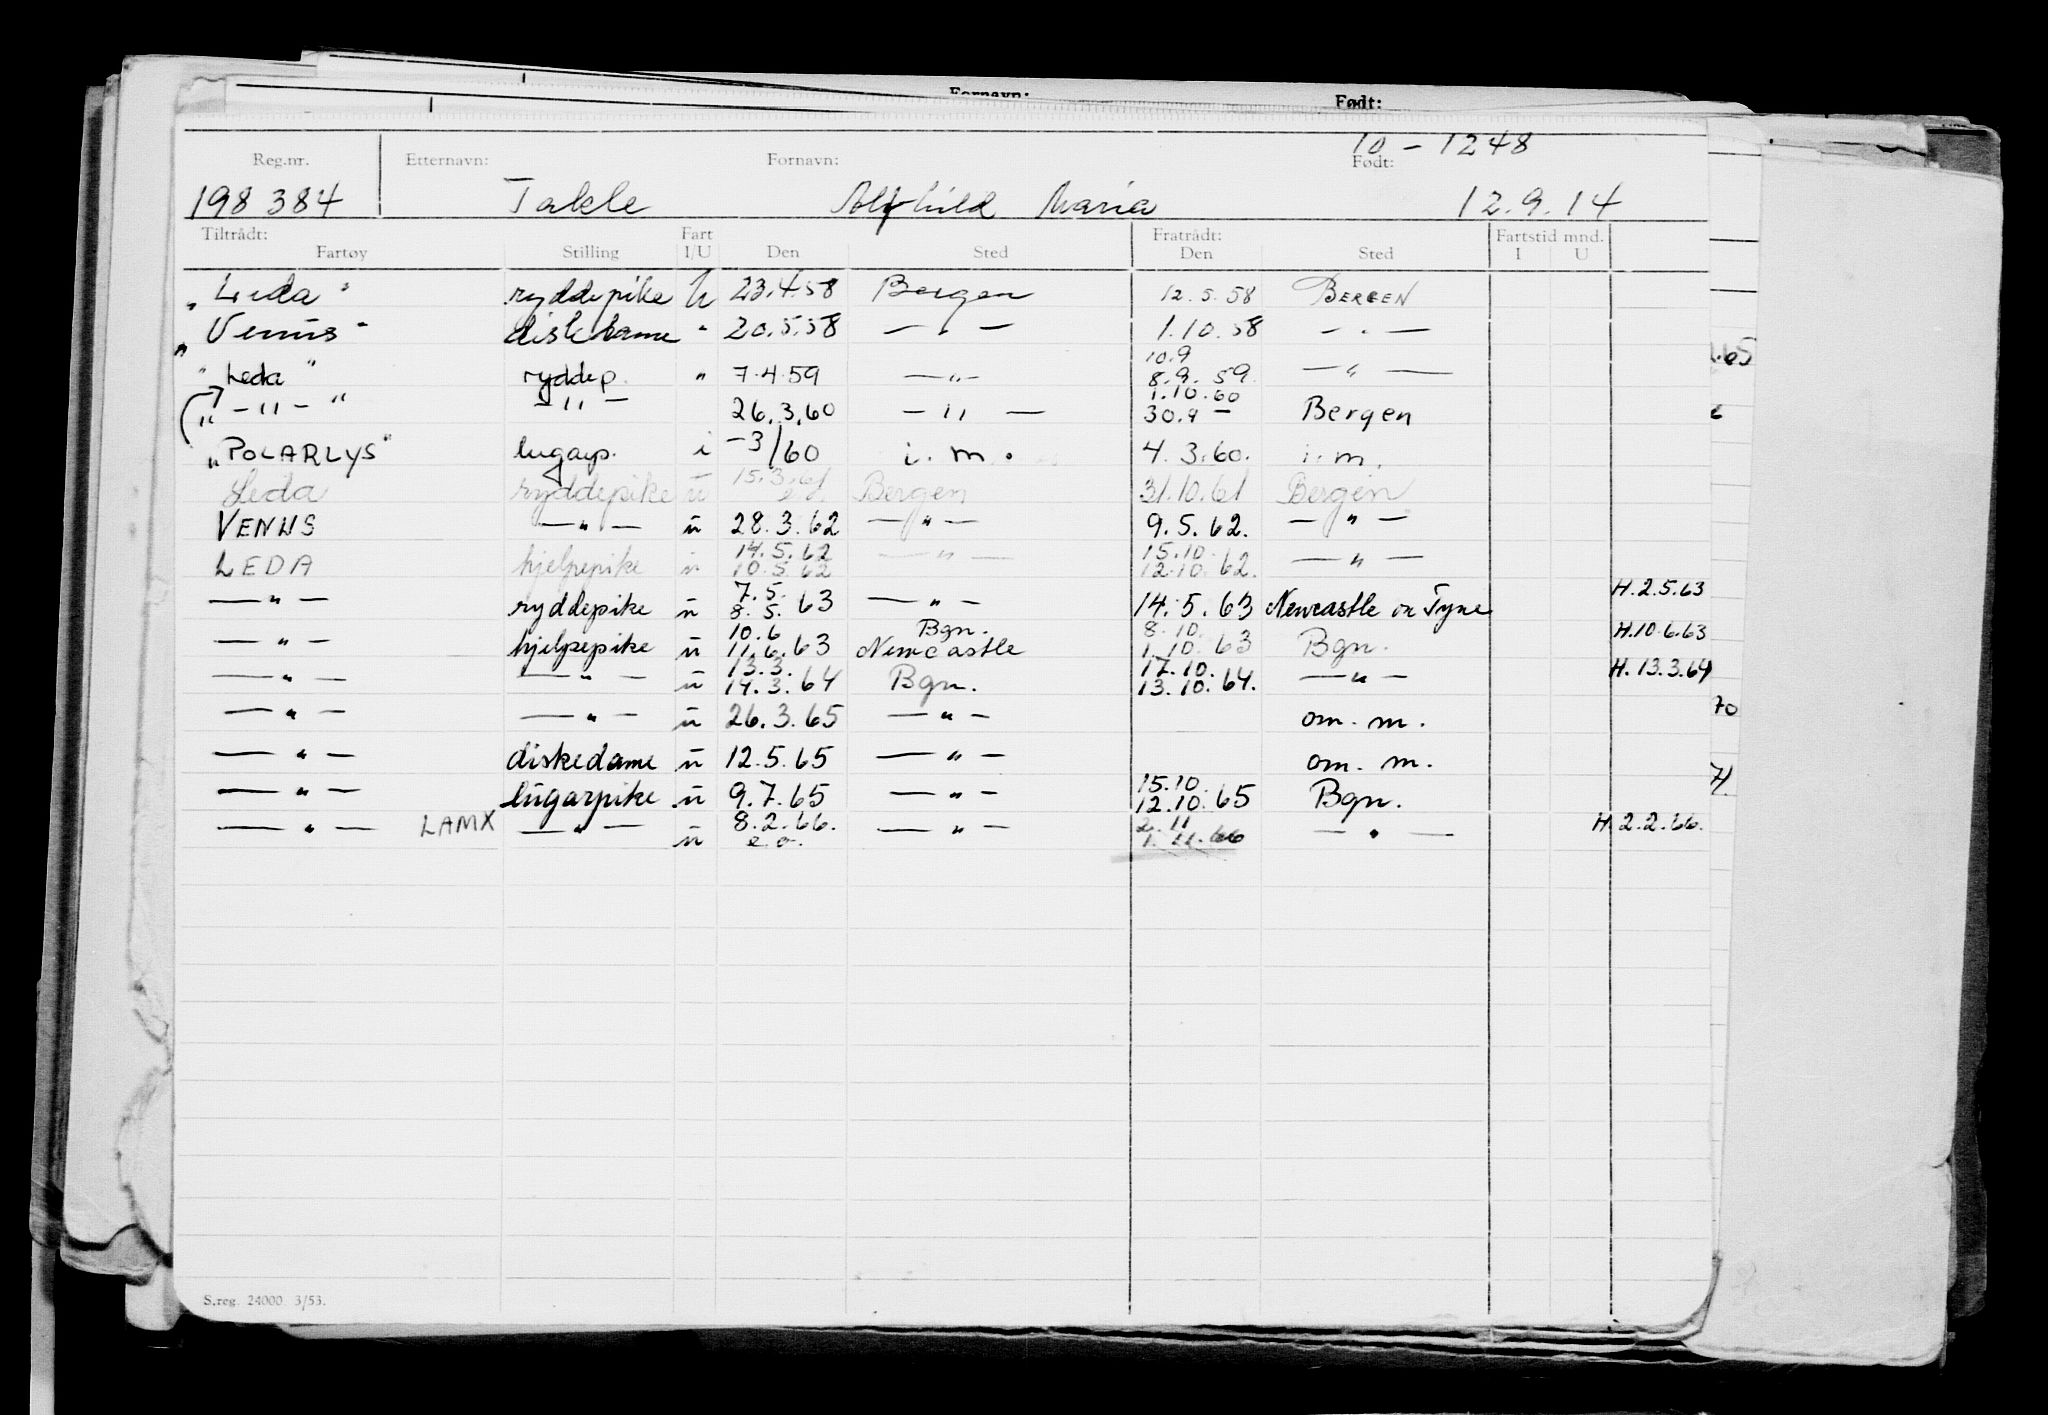 Fornavn: Født:
10 - 1248
Reg.nr. Etternavn: Fornavn: Født:
198 384 Takle Alfhild Maria 12.9.14
Tiltrådt: Fart Fratrådt: Fartstid mnd.
Fartøy Stilling I/U Den Sted Den Sted I U
"Leda" ryddepike U 23.4.58 Bergen 12.5.58 BERGEN
"Venus" diskedame " 20.5.58 — " — 1.10.58 — " —
10.9
"Leda" ryddep. " 7.4.59 — " — 8.9.59 — " —
1.10.60
" — " — " — " — 26.3.60 — " — 30.9 — Bergen
"POLARLYS" lugarp. i -3/60 i.m. 4.3.60. i.m.
15.3.61
Leda ryddepike u Bergen 31.10.61 Bergen
VENUS — " — u 28.3.62 — " — 9.5.62. — " —
14.5.62 15.10.
LEDA hjelpepike u 10.5.62 — " — 12.10.62. — " —
7.5. H.2.5.63
— " — ryddepike u 8.5.63 — " — 14.5.63 Newcastle on Tyne
10.6 Bgn. 8.10. H.10.6.63
— " — hjelpepike u 11.6.63 Newcastle 1.10.63 Bgn.
13.3. 17.10. H.13.3.64
— " — — " — u 14.3.64 Bgn. 13.10.64. — " —
— " — — " — u 26.3.65 — " — om. m.
— " — diskedame u 12.5.65 — " — om. m.
15.10.
— " — lugarpike u 9.7.65 — " — 12.10.65 Bgn.
— " — LAMX — " — u 8.2.66. — " — 2.11 — " — H.2.2.66.
e.o. 1.11.66
70
S.reg. 24000 3/53.